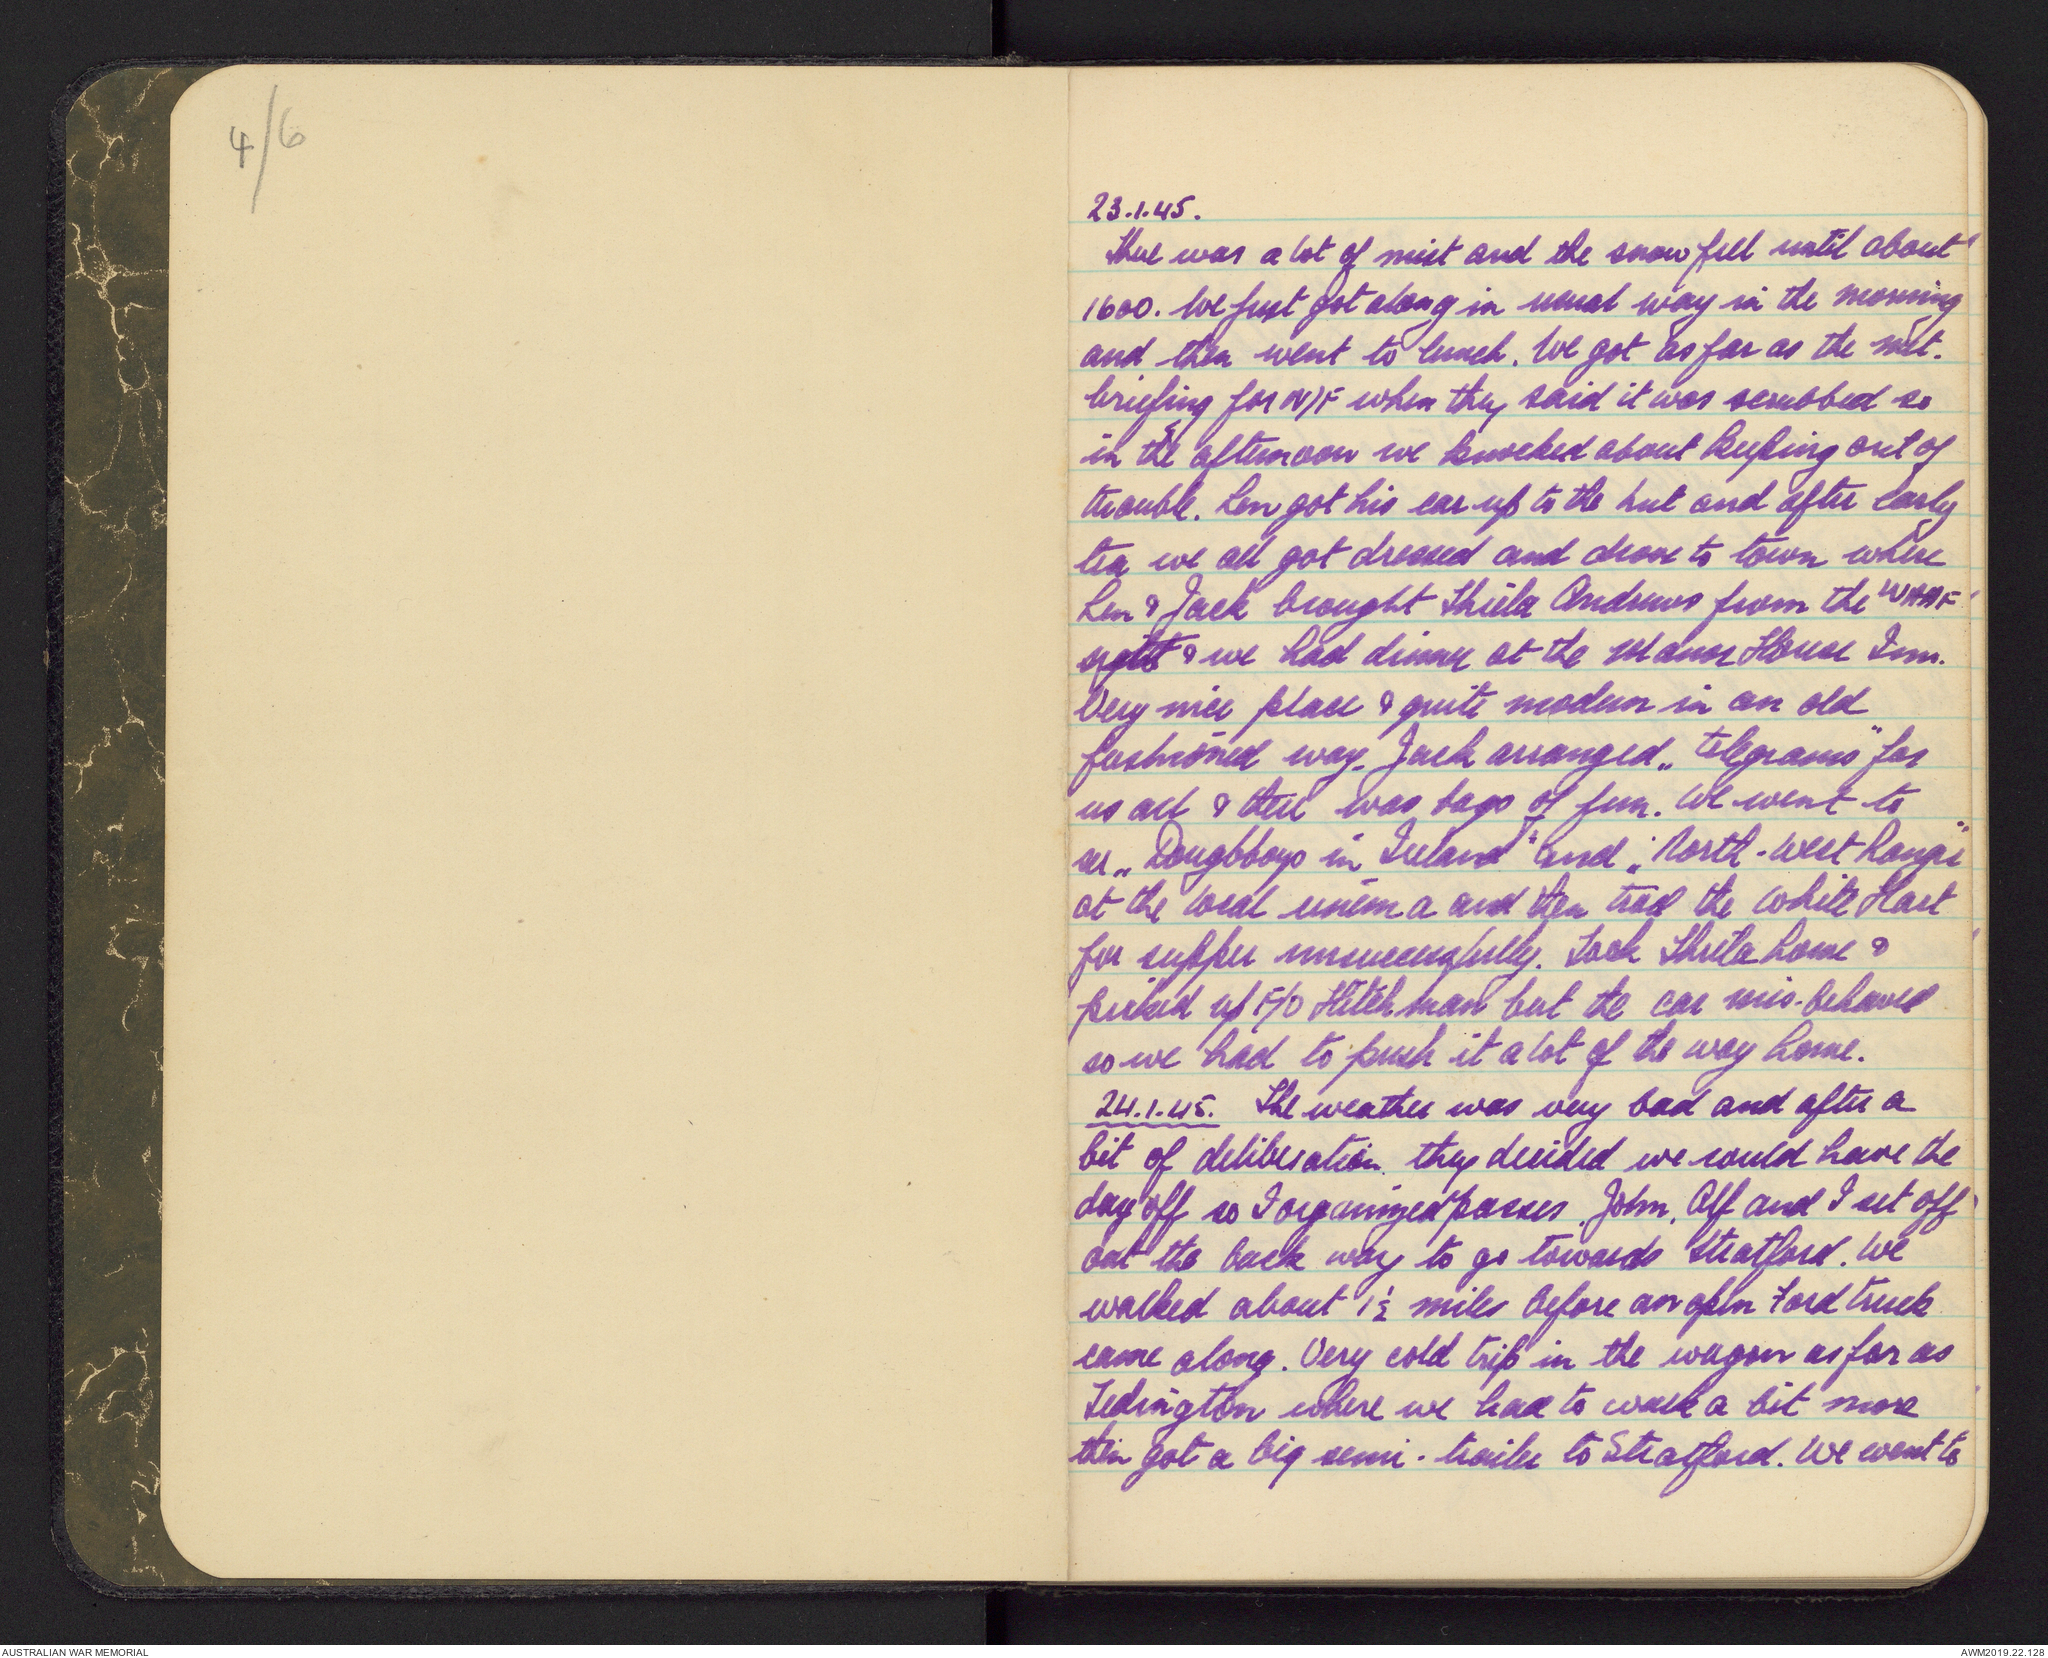 4/6
23.1.45.
There was a lot of mist and the snow fell until about
1600. We just got along in usual way in the morning
and then went to lunch. We got as far as the met.
briefing for N/F when they said it was scrubbed so
in the afternoon we knocked about keeping out of
trouble. Len got his car up to the hut and after early
tea we all got dressed and drove to town where
Len & Jack brought Shiela Andrews from the WAAF
& we had dinner at the Manor House Inn.
Very nice place & quite modern in an old
fashioned way. Jack arranged „ telegrams" for
us all & there was bags of fun. We went to
see „ Doughboys in Ireland" and „ North-West Rangi"
at the local cinema and then tried the White Hart
for supper unsuccessfully. Took Shiela home &
picked up F/O Hitchman but the car mis-behaved
so we had to push it a lot of the way home.
24.1.45. The weather was very bad and after a
bit of deliberation they decided we would have the
day off so I organized passes. John, Alf and I set off
out the back way to go towards Stratford. We
walked about 1½ miles before an open Ford truck
came along. Very cold trip in the wagon as far as
Tedington where we had to walk a bit more
then got a big semi-trailer to Stratford. We went to
AUSTRALIAN WAR MEMORIAL
AWM2019.22.128